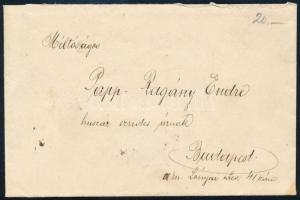 20.—
Méltóságos
Papp-Ragány Endre
huszár ezredes úrnak
Budapest.
Lónyai utca 41 szám